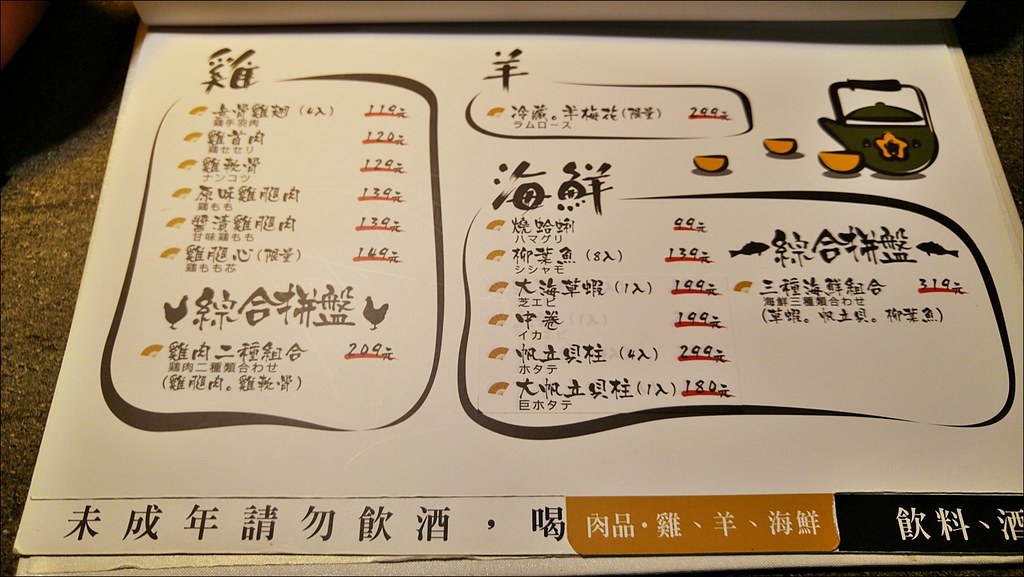 雞
去骨雞翅(4入) 119元
鶏手羽肉
雞首肉 120元
鶏セセリ
雞軟骨 129元
ナンコツ
原味雞腿肉 139元
鶏もも
醬漬雞腿肉 139元
甘味鶏もも
雞腿心(限量) 149元
鶏もも芯
綜合拼盤
雞肉二種組合 209元
鶏肉二種類合わせ
(雞腿肉。雞軟骨)
羊
冷藏。羊梅花(限量) 299元
ラムロース
海鮮
燒蛤蜊 99元
ハマグリ
柳葉魚(8入) 139元
シシャモ
大海草蝦(1入) 199元
芝エビ
中卷 199元
イカ
帆立貝柱(4入) 299元
ホタテ
大帆立貝柱(1入) 180元
巨ホタテ
綜合拼盤
三種海鮮組合 319元
海鮮三種類合わせ
(草蝦。帆立貝。柳葉魚)
未成年請勿飲酒,喝
肉品·雞、羊、海鮮
飲料、酒